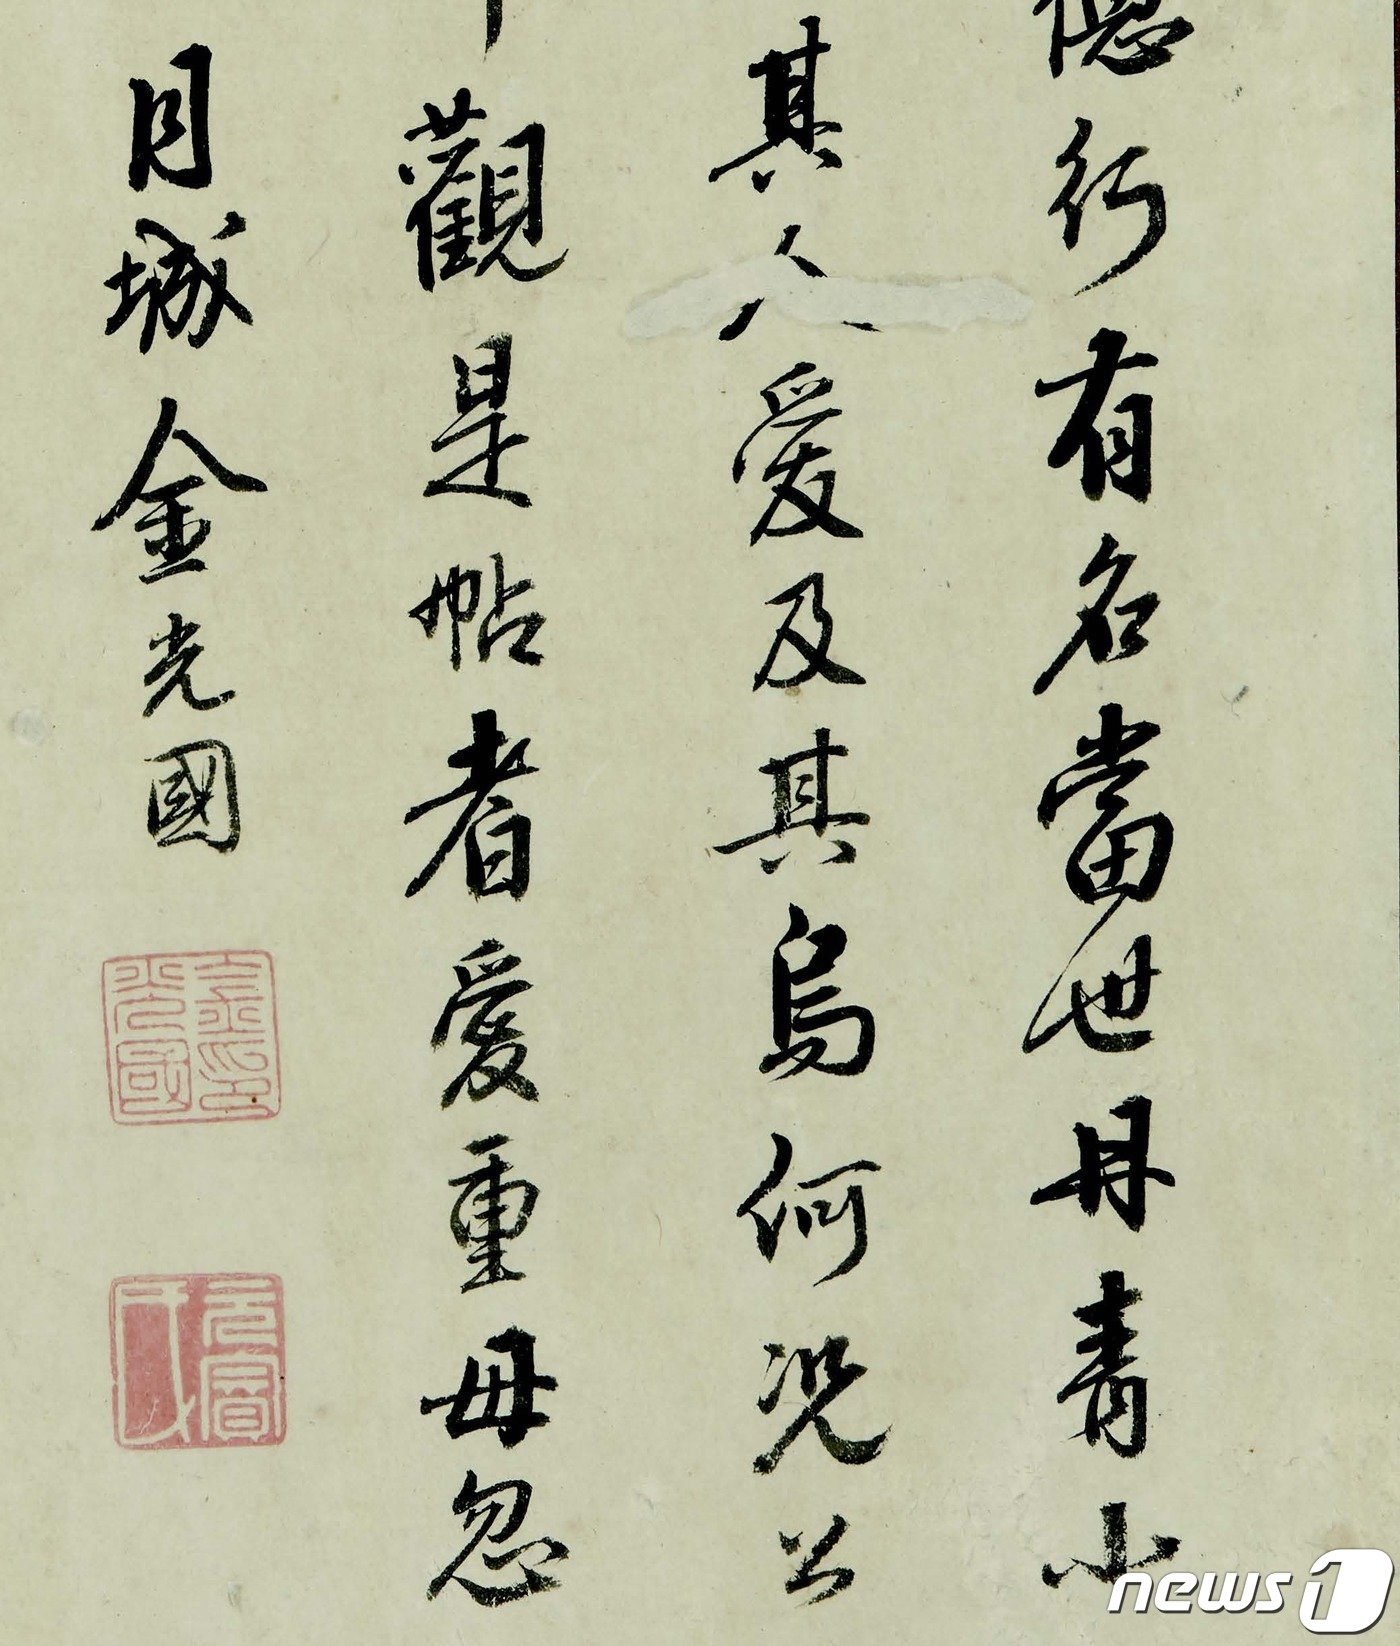 德行有名當世丹青小
其人愛及其烏何況公
觀是帖者愛重毋忽
月城金光國
金光國印
元賓氏
news1